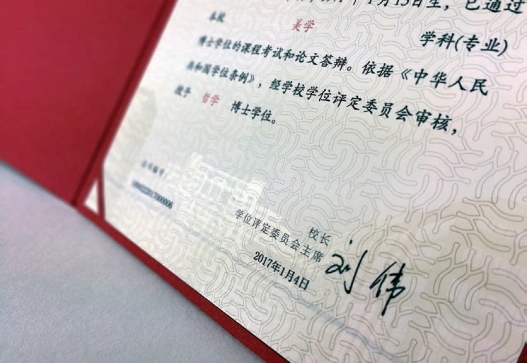 月15日生，已通过
本校 美学 学科(专业)
博士学位的课程考试和论文答辩。依据《中华人民
共和国学位条例》，经学校学位评定委员会审核，
授予 哲学 博士学位。
证书编号：
校长
学位评定委员会主席
刘伟
2017年1月4日